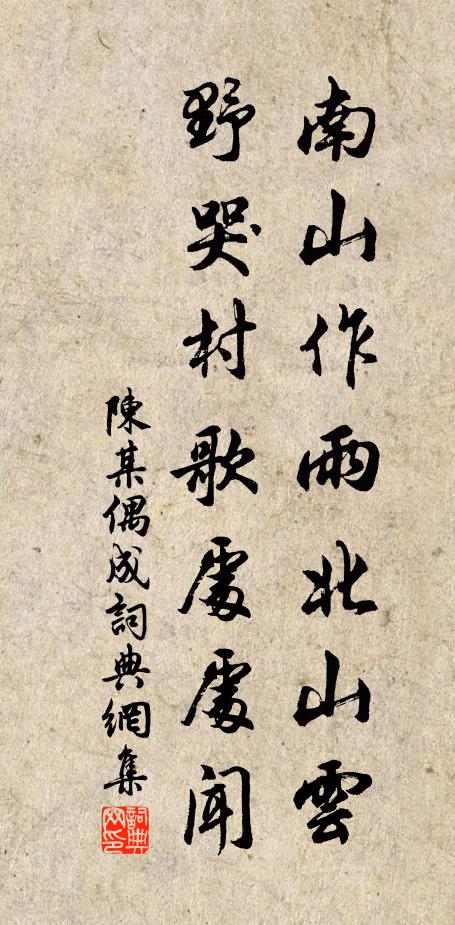 南山作雨北山雲
野哭村歌處處闻
陳某偶成詞典網集
詞典
网印